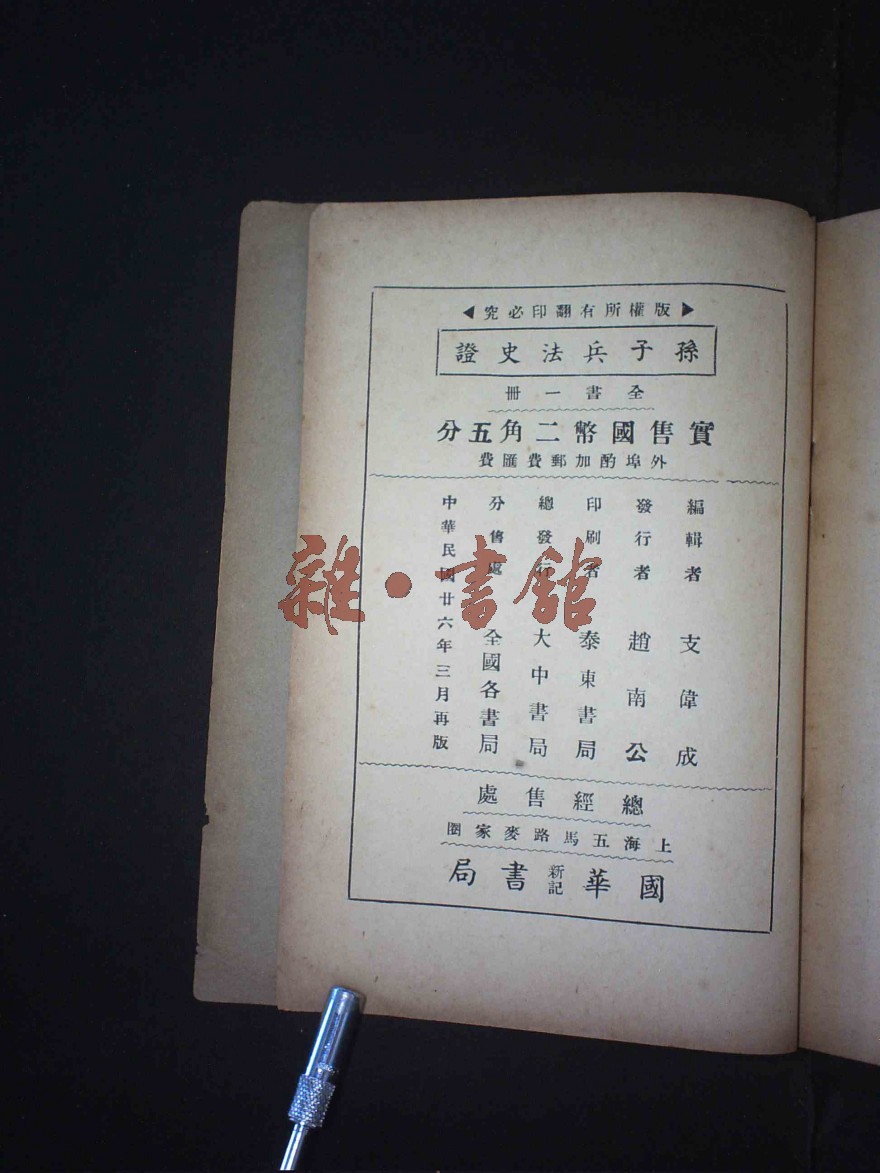 版權所有翻印必究
孫子兵法史證
全書一冊
實售國幣二角五分
外埠酌加郵費匯費
編輯者 支偉成
發行者 趙南公
印刷者 泰東書局
總發行 大中書局
分售處 全國各書局
中華民國廿六年三月再版
總經售處
上海五馬路麥家圈
國華新記書局
雜·書館